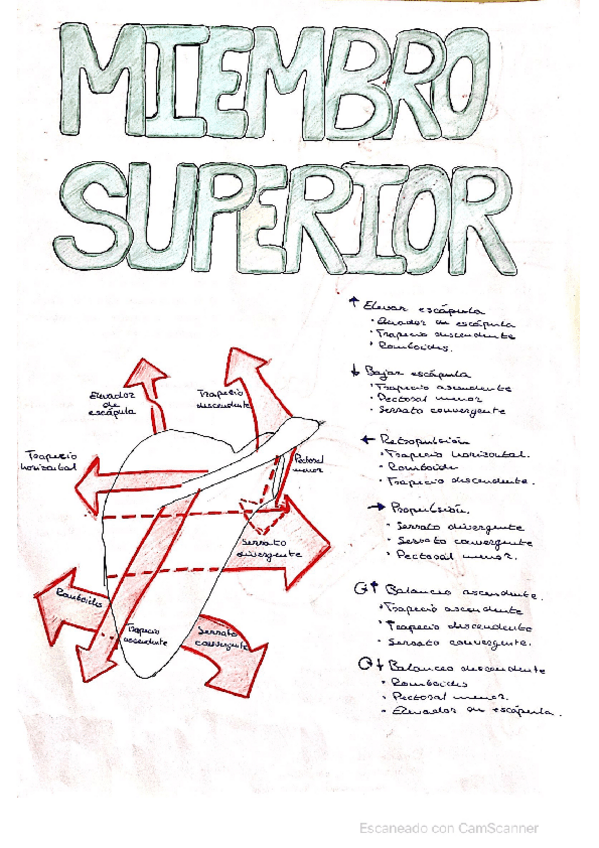 MIEMBRO
SUPERIOR
↑ Elevar escápula
· Elevador de escápula
· Trapecio descendente
· Romboides.
↓ Bajar escápula
· Trapecio ascendente
· Pectoral menor
· Serrato convergente
← Retropulsión
· Trapecio horizontal.
· Romboides
· Trapecio descendente.
→ Propulsión.
· Serrato divergente
· Serrato convergente
· Pectoral menor.
↑ Balanceo ascendente.
· Trapecio ascendente
· Trapecio descendente
· Serrato convergente.
↓ Balanceo descendente
· Romboides
· Pectoral menor.
· Elevador de escápula.
Elevador
de
escápula
Trapecio
descendente
Trapecio
horizontal
Pectoral
menor
Serrato
divergente
Romboides
Trapecio
ascendente
Serrato
convergente
Escaneado con CamScanner